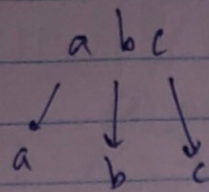 a b c
a b c